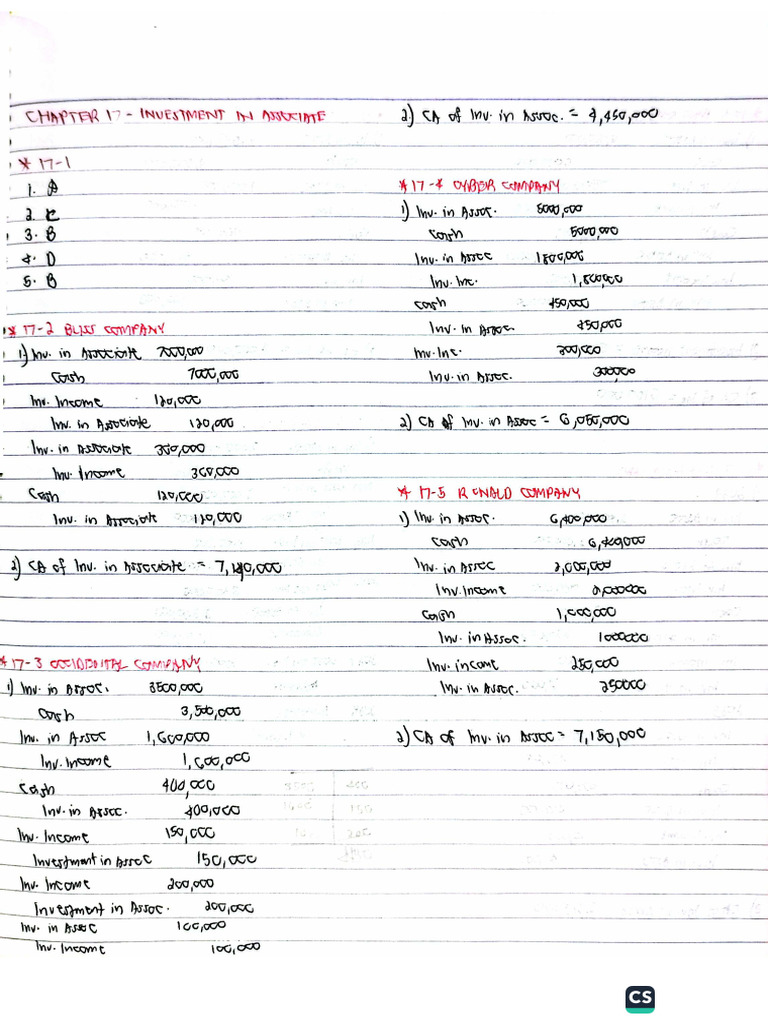 CHAPTER 17 - INVESTMENT IN ASSOCIATE
* 17-1
1. A
2. C
3. B
4. D
5. B
* 17-2 BLISS COMPANY
1) Inv. in Associate 7000,000
Cash 7000,000
Inv. Income 120,000
Inv. in Associate 120,000
Inv. in Associate 360,000
Inv. Income 360,000
Cash 120,000
Inv. in Associate 120,000
2) CA of Inv. in Associate = 7,120,000
* 17-3 OCCIDENTAL COMPANY
1) Inv. in Assoc. 3500,000
Cash 3,500,000
Inv. in Assoc 1,600,000
Inv. Income 1,600,000
Cash 400,000
Inv. in Assoc. 400,000
Inv. Income 150,000
Investment in Assoc 150,000
Inv. Income 200,000
Investment in Assoc. 200,000
Inv. in Assoc 100,000
Inv. Income 100,000
2) CA of Inv. in Assoc. = 4,450,000
* 17-4 CYBER COMPANY
1) Inv. in Assoc. 5000,000
Cash 5000,000
Inv. in Assoc 1,800,000
Inv. Inc. 1,800,000
Cash 450,000
Inv. in Assoc. 450,000
Inv. Inc. 300,000
Inv. in Assoc. 300000
2) CA of Inv. in Assoc = 6,050,000
* 17-5 RONALD COMPANY
1) Inv. in Assoc. 6,400,000
Cash 6,400,000
Inv. in Assoc 2,000,000
Inv. Income 2,000000
Cash 1,000,000
Inv. in Assoc. 1000000
Inv. income 250,000
Inv. in Assoc. 250000
2) CA of Inv. in Assoc = 7,150,000
CS